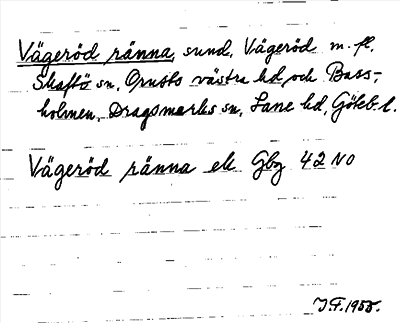 Vägeröd ränna, sund, Vägeröd m. fl.
Skaftö sn, Orusts västra hd, och Bass-
holmen, Dragsmarks sn, Lane hd, Göteb. l.
Vägeröd ränna ek Gbg 42 NO
J.F. 1955.